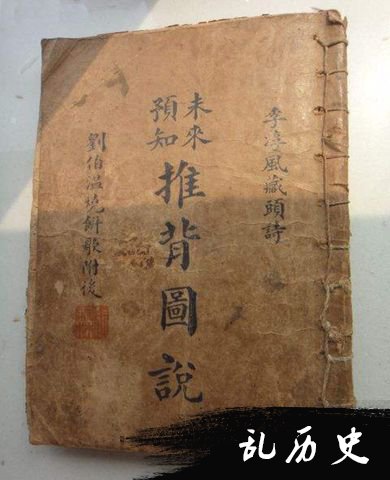 李淳風藏頭詩
未來
預知
推背圖說
劉伯温燒餅歌附後
乱历史